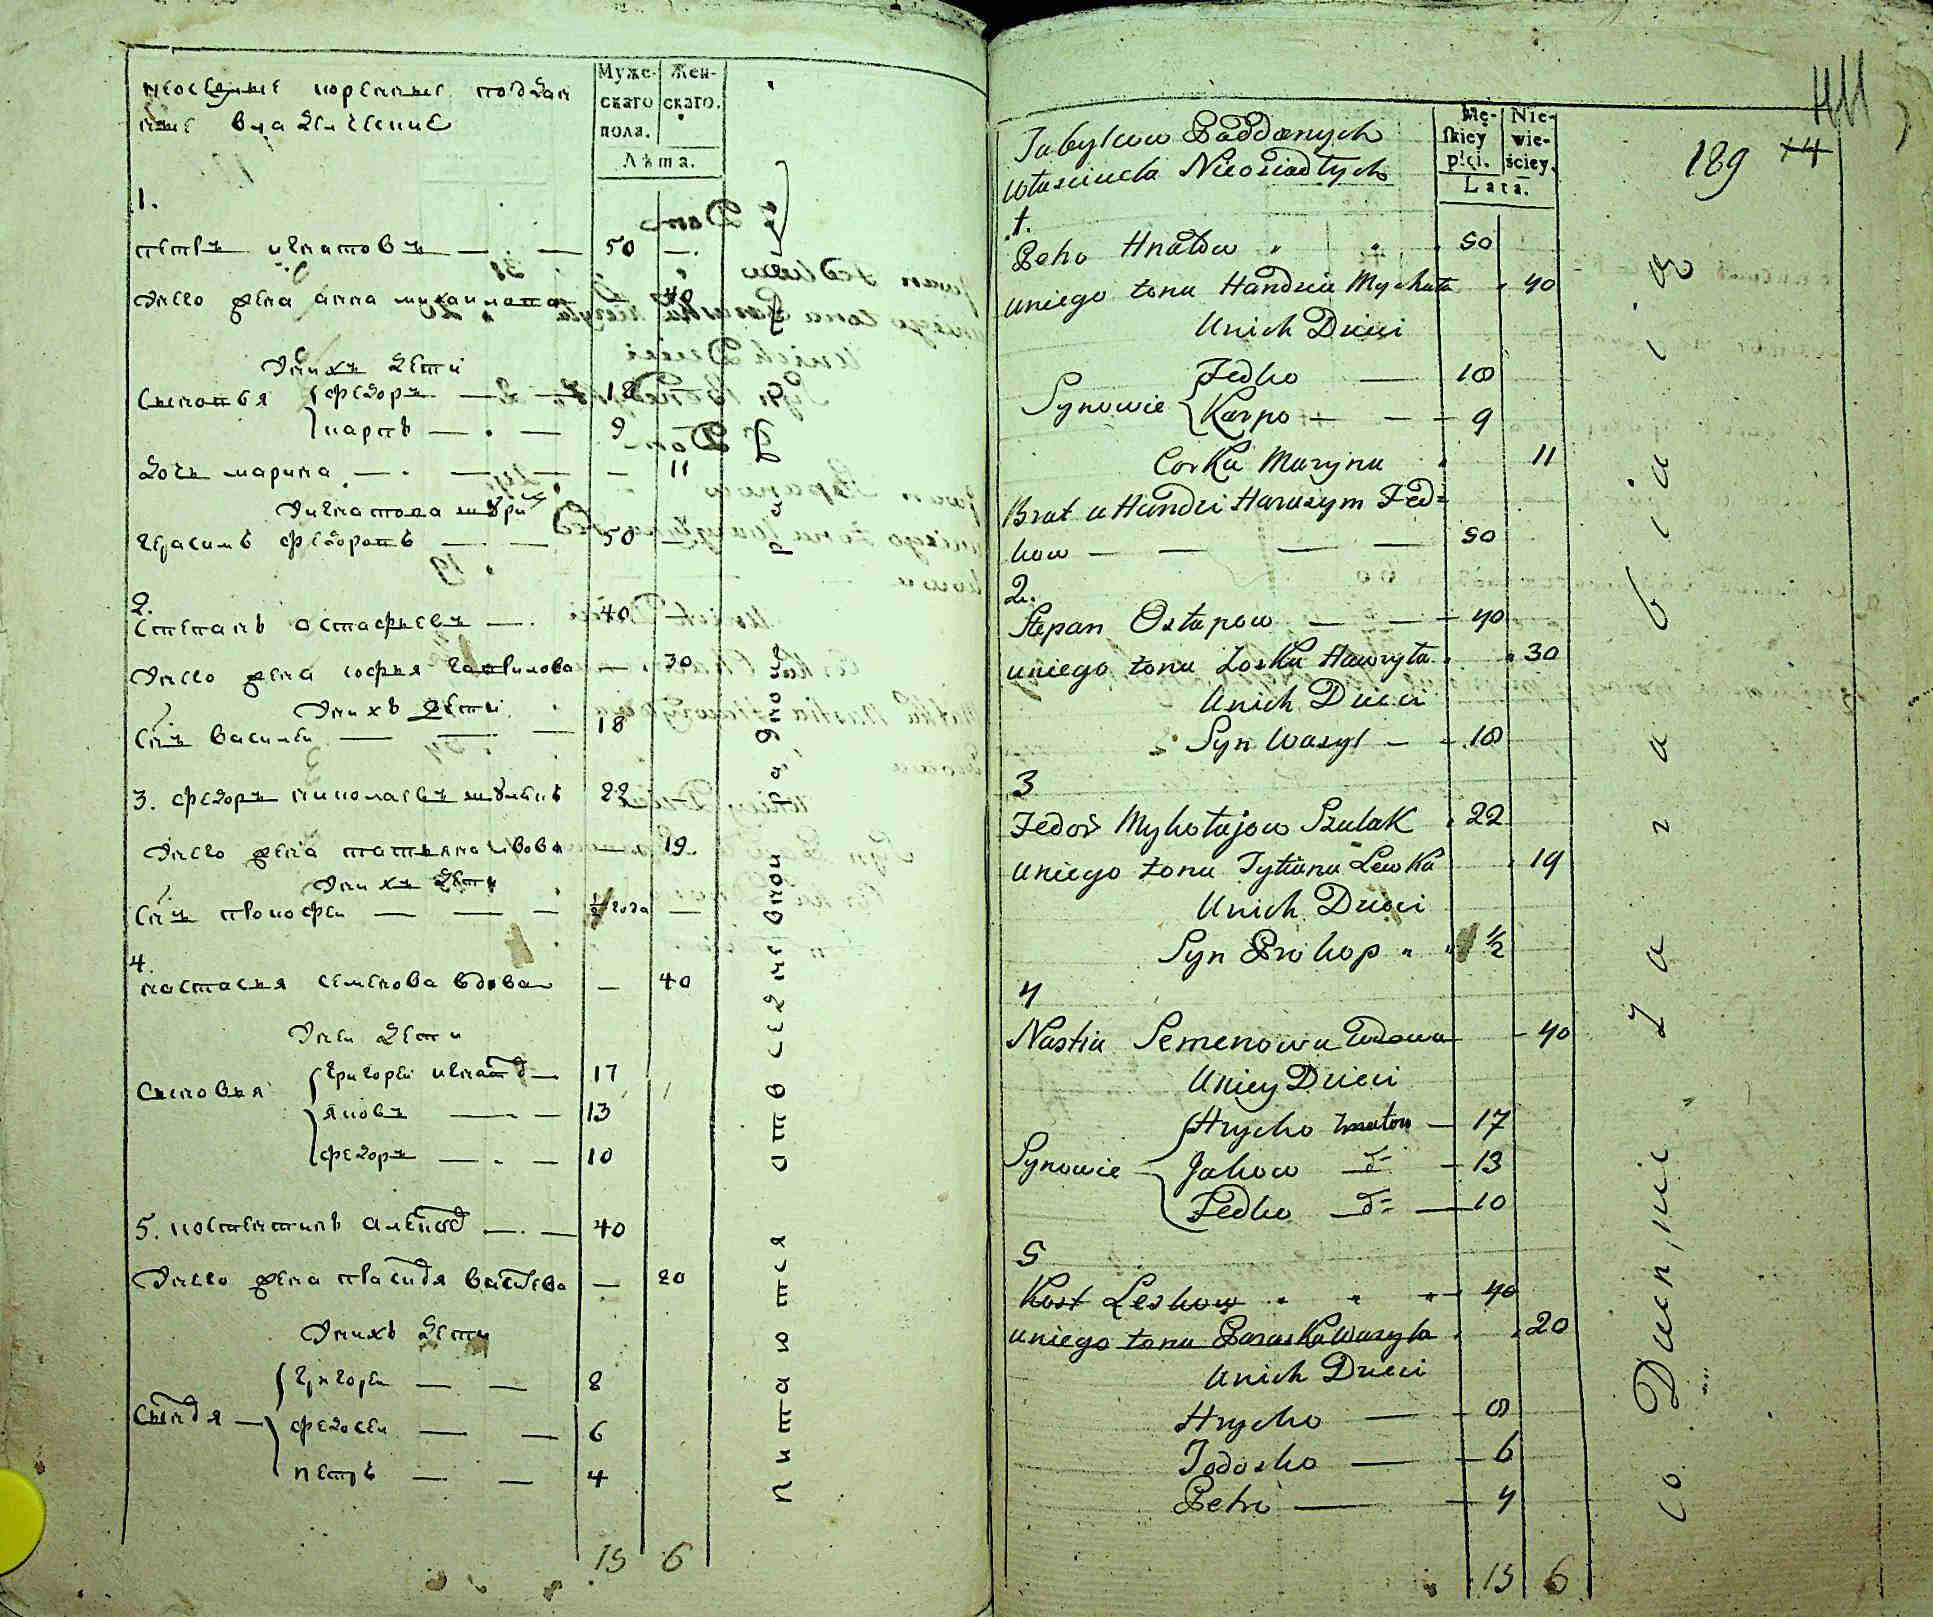 неоседлые коренные поддан
ные владелческие
Муже-
скаго
пола.
Жен-
скаго.
Лѣта.
1.
петръ игнатовъ — — 50 —
у него жена анна михаилова 40
у них дети
Сыновья федоръ — — 18
карпъ — — 9
дочь марина — — — 11
герасимъ федоровъ — — 50 —
2.
Степанъ остафьевъ — 40 —
у него жена софья гаврилова — 30
у нихъ дети
Сынъ василеи — — — 18
3. федоръ николаевъ шулякъ 22
у него жена татьяна львова — 19
у нихъ дети
Сынъ прокофеи — — — 1/2 года —
4.
настасья семенова вдова — 40
у неи дети
Сыновья григореи игнатов — 17
яковъ — — 13
федоръ — — 10
5. костентинъ — — 40
у него жена — 20
у нихъ дети
григореи — — 8
федосеи — — 6
петръ — — 4
15 6
питаются отъ ежедневной работы
441
189 74
Tubylcow Poddanych
Własciciela Nieosiadłych
Mę-
skiey
płci.
Nie-
wie-
ściey.
Lata.
1.
Petro Hnatow 50
u niego żona Handzia Mychała 40
U nich Dzieci
Synowie Fedko — 18
Karpo — — 9
Corka Maryna 11
Brat u Handzi Harasym Fed=
kow — — — — 50
2.
Stepan Ostapow — — 40
u niego żona Zoska Hawryła 30
U nich Dzieci
Syn Wasyl — — 18
3
Fedor Mykołajow Szulak 22
u niego żona Tytiana Lewka 19
U nich Dzieci
Syn Prokop 1/2
4
Nastia Semenowa Wdowa — 40
U niey Dzieci
Synowie Hrycko Hnatow — 17
Jakow — d= — 13
Fedko — d= — 10
5
Kost Leskow 40
u niego żona Paraska Wasyla 20
U nich Dzieci
Hrycko — — 8
Fedosko — — 6
Petro — — 4
15 6
co Dzien,nie zarabiaią